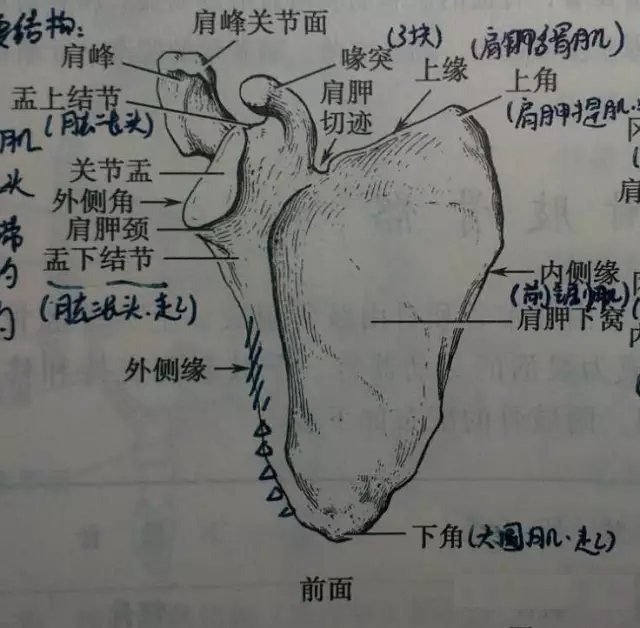 要结构:
肩峰关节面
肩峰
喙突
(3块)
(肩胛舌骨肌)
上缘
上角
盂上结节
(肱二长头)
肩胛
切迹
(肩胛提肌.
肌
头
关节盂
外侧角
肩胛颈
盂下结节
(肱三长头.起)
带
的
的
内侧缘
(前锯肌)
肩胛下窝
外侧缘
下角
(大圆肌.起)
前面
肢骨